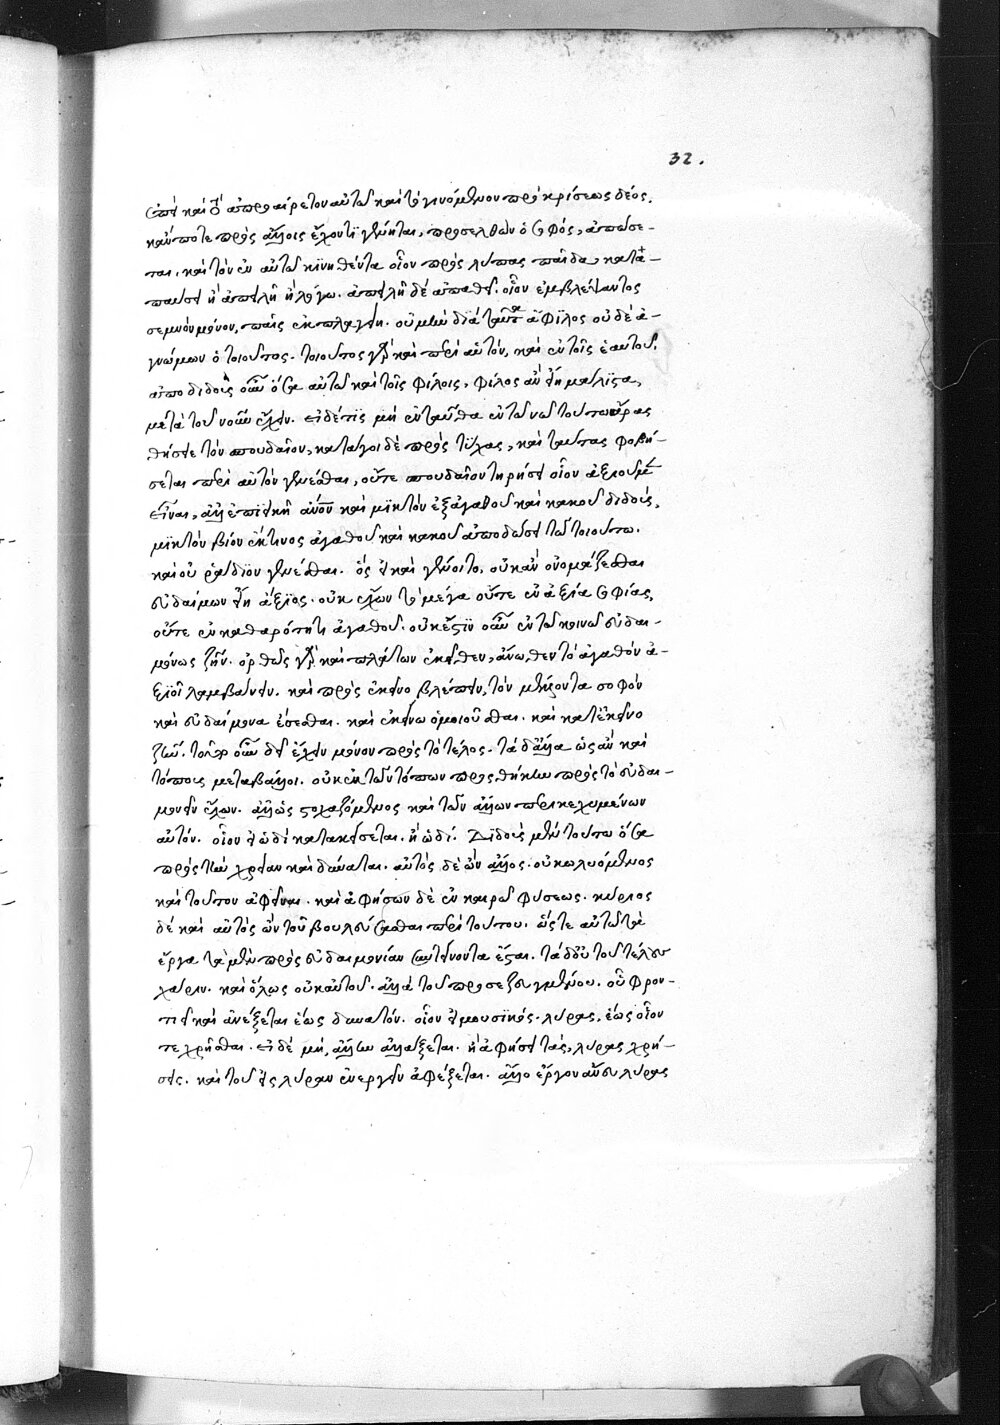 32.
ἐπεὶ καὶ τὸ ἀπροαίρετον αὐτῶ καὶ τὸ γινόμενον πρὸ κρίσεως δέος.
κἄν ποτε πρὸς ἄλλοις ἔχοντι γένηται, προσελθὼν ὁ σοφός, ἀπώσε-
ται. καὶ τὸν ἐν αὐτῶ κινηθέντα οἷον πρὸς λύπας παῖδα κατα-
παύσει ἢ ἀπειλῇ ἢ λόγω. ἀπειλῇ δὲ ἀπαθεῖ. οἷον ἐμβλέψαντος
σεμνὸν μόνον, παῖς ἐκπλαγείη. οὐ μὴν διὰ ταῦτα ἄφιλος οὐδὲ ἀ-
γνώμων ὁ τοιοῦτος. τοιοῦτος γὰρ καὶ περὶ αὑτόν, καὶ ἐν τοῖς ἑαυτοῦ.
ἀποδιδοὺς οὖν ὅσα αὐτῶ καὶ τοῖς φίλοις, φίλος ἂν εἴη μάλιστα,
μετὰ τοῦ νοῦν ἔχειν. εἰ δέ τις μὴ ἐνταῦθα ἐν τῶ νῶ τούτω ἄρας
θήσει τὸν σπουδαῖον, κατάγοι δὲ πρὸς τύχας, καὶ ταύτας φοβή-
σεται περὶ αὐτὸν γενέσθαι, οὔτε σπουδαῖον τηρήσει οἷον ἀξιοῦμεν
εἶναι, ἀλλ' ἐπιεικῆ ἄνον καὶ μικτὸν ἐξ ἀγαθοῦ καὶ κακοῦ διδούς,
μικτὸν βίον ἔκ τινος ἀγαθοῦ καὶ κακοῦ ἀποδώσει τῶ τοιούτω.
καὶ οὐ ῥάδιον γενέσθαι. ὃς εἰ καὶ γένοιτο, οὐκ ἂν ὀνομάζεσθαι
εὐδαίμων εἴη ἄξιος. οὐκ ἔχων τὸ μέγα οὔτε ἐν ἀξία σοφίας,
οὔτε ἐν καθαρότητι ἀγαθοῦ. οὐκ ἔστιν οὖν ἐν τῶ κοινῶ εὐδαι-
μόνως ζῆν. ὀρθῶς γὰρ καὶ πλάτων ἐκεῖθεν, ἄνωθεν τὸ ἀγαθὸν ἀ-
ξιοῖ λαμβάνειν. καὶ πρὸς ἐκεῖνο βλέπειν, τὸν μέλλοντα σοφὸν
καὶ εὐδαίμονα ἔσεσθαι. καὶ ἐκείνω ὁμοιοῦσθαι. καὶ κατ' ἐκεῖνο
ζῆν. τοῦτο οὖν δεῖ ἔχειν μόνον πρὸς τὸ τέλος. τὰ δ' ἄλλα ὡς ἂν καὶ
τόπους μεταβάλλοι. οὐκ ἐκ τῶν τόπων προσθήκην πρὸς τὸ εὐδαι-
μονεῖν ἔχων. ἀλλ' ὡς στοχαζόμενος καὶ τῶν ἄλλων περικεχυμένων
αὐτόν. οἷον εἰ ὡδὶ κατακείσεται. ἢ ὡδί. Διδοὺς μὲν τούτω ὅσα
πρὸς τὴν χρείαν καὶ δύναται. αὐτὸς δὲ ὢν ἄλλος. οὐ κωλυόμενος
καὶ τοῦτον ἀφεῖναι. καὶ ἀφήσων δὲ ἐν καιρῶ φύσεως. κύριος
δὲ καὶ αὐτὸς ὢν τοῦ βουλεύσασθαι περὶ τούτου. ὥστε αὐτῶ τὰ
ἔργα τὰ μὲν πρὸς εὐδαιμονίαν συντείνοντα ἔσται. τὰ δ' οὐ τοῦ τέλους
χάριν. καὶ ὅλως οὐκ αὐτοῦ. ἀλλὰ τοῦ προσεζευγμένου. οὗ φρον-
τιεῖ καὶ ἀνέξεται ἕως δυνατόν. οἷον εἰ μουσικὸς λύρας, ἕως οἷόν
τε χρῆσθαι. εἰ δὲ μή, ἄλλην ἀλλάξεται. ἢ ἀφήσει τὰς λύρας χρή-
σεις. καὶ τοῦ εἰς λύραν ἐνεργεῖν ἀφέξεται. ἄλλο ἔργον ἄνευ λύρας